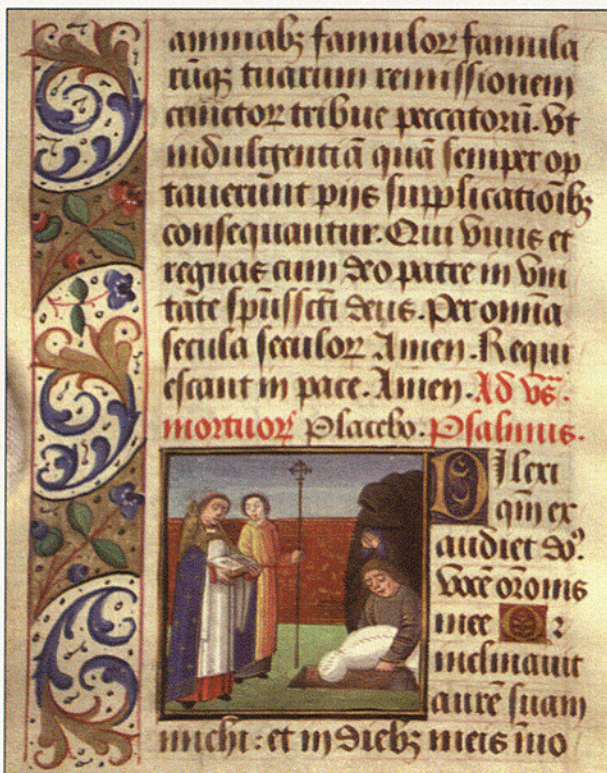 animabꝫ famulorꝝ famula
rūqꝫ tuarum remissionem
cunctorꝝ tribue peccatorū. Vt
indulgentiā quā semper op
taverunt piis supplicatioībꝫ
consequantur. Qui vivis et
regnas cum deo patre in vni
tate spūssc̄ti deus. Per omnia
secula seculorꝝ Amen. Requi
escant in pace. Amen. Ad vs̄.
mortuorꝝ Placebo. Psalmus.
Dilexi
qm̄ ex
audiet do.
vocē orōnis
mee Qr
inclinavit
aurē suam
michi: et in diebꝫ meis īuo